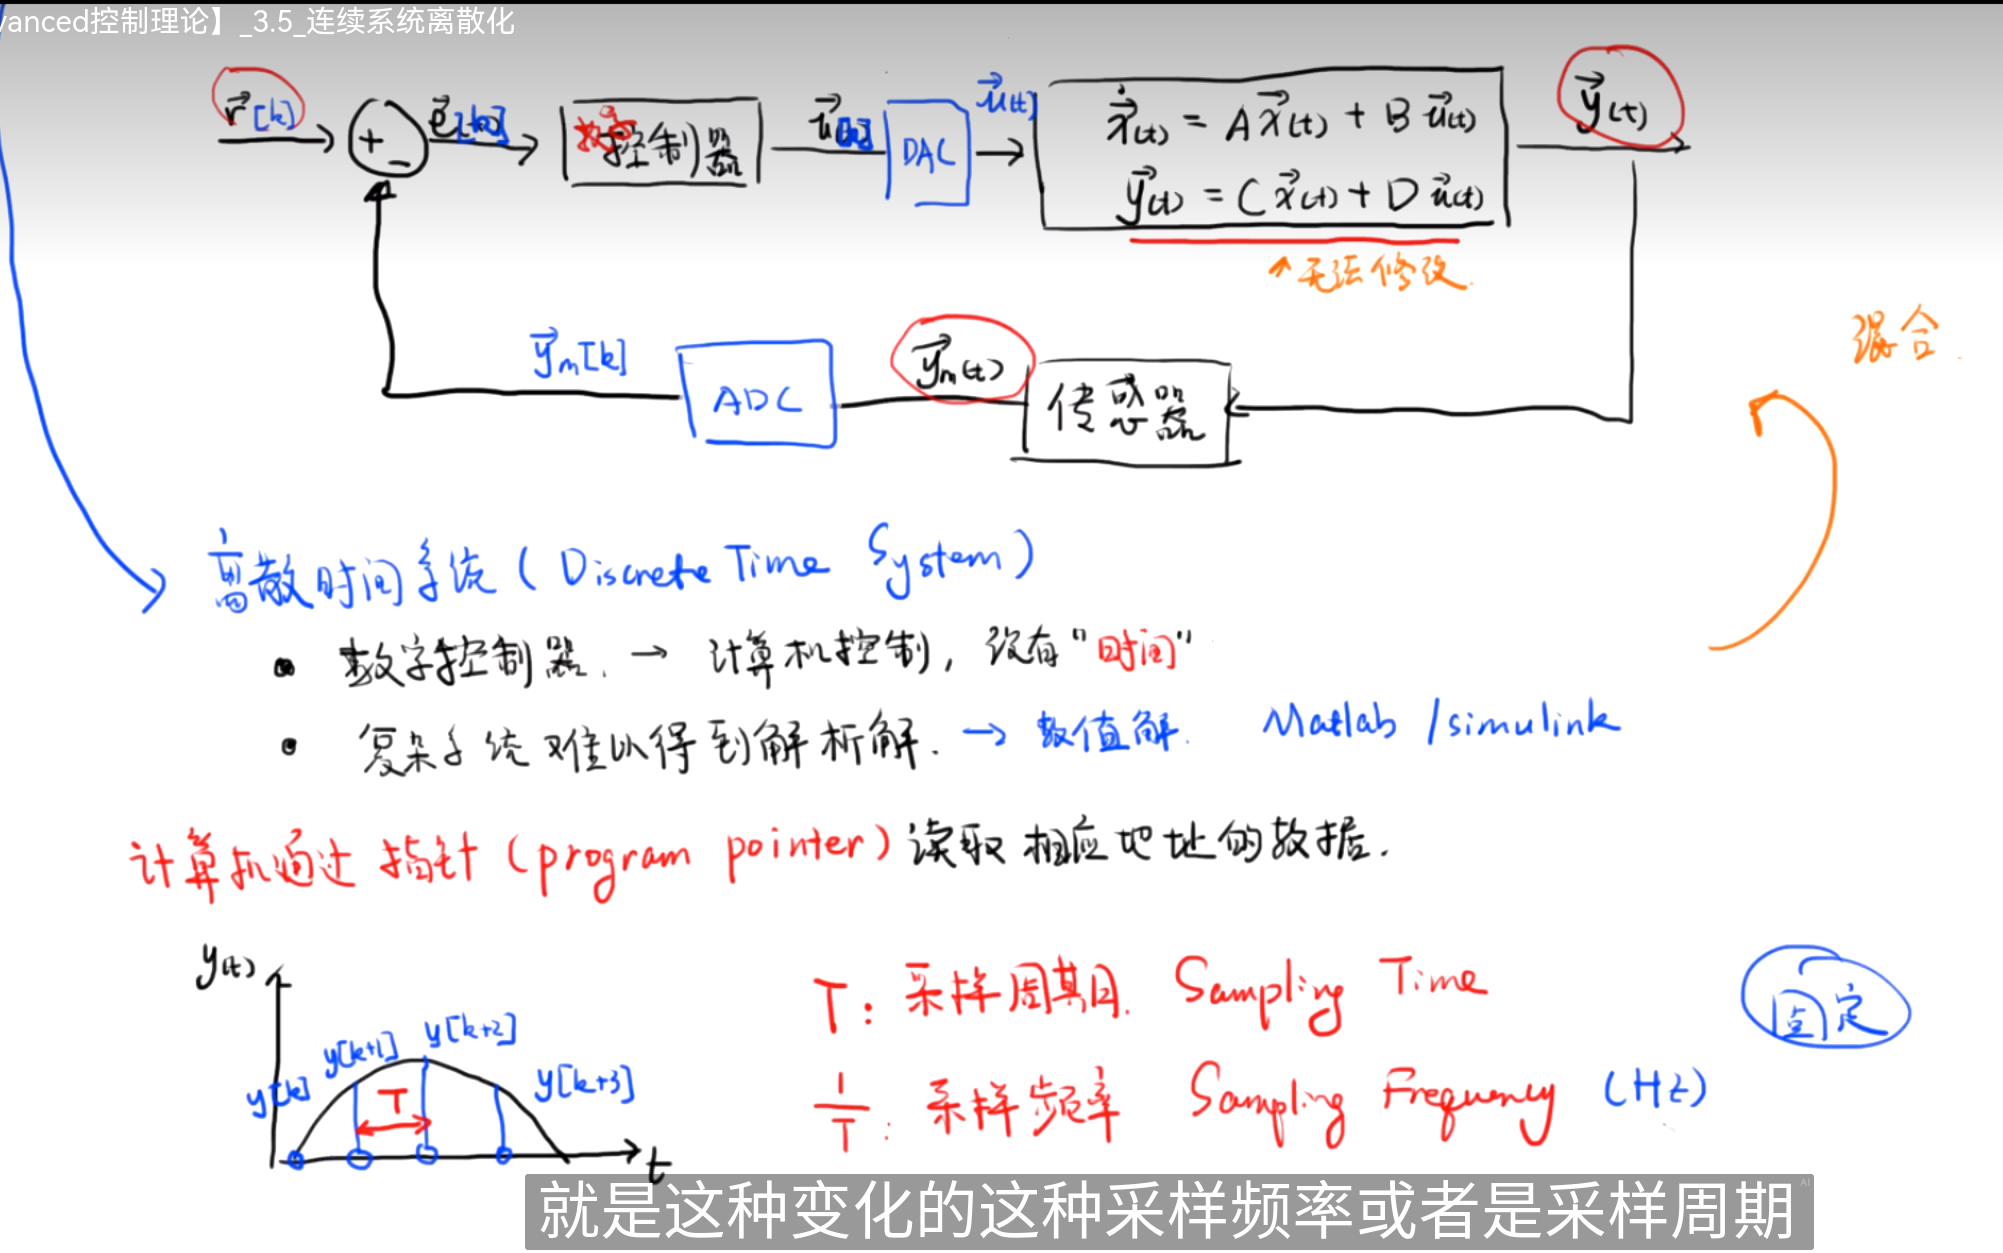 vanced控制理论】_3.5_连续系统离散化
r[k] + - e[k] 数字控制器 u[k] DAC u(t) ẋ(t) = Ax(t) + Bu(t) y(t)
y(t) = Cx(t) + Du(t)
无法修改.
混合.
ym[k] ADC ym(t) 传感器
离散时间系统 ( Discrete Time System )
• 数字控制器. → 计算机控制, 没有"时间"
• 复杂系统难以得到解析解. → 数值解. Matlab /simulink
计算机通过指针 (program pointer) 读取相应地址的数据.
y(t)
y[k] y[k+1] y[k+2] y[k+3]
T
t
T: 采样周期. Sampling Time
固定
1/T: 采样频率 Sampling Frequency (Hz)
就是这种变化的这种采样频率或者是采样周期
AI